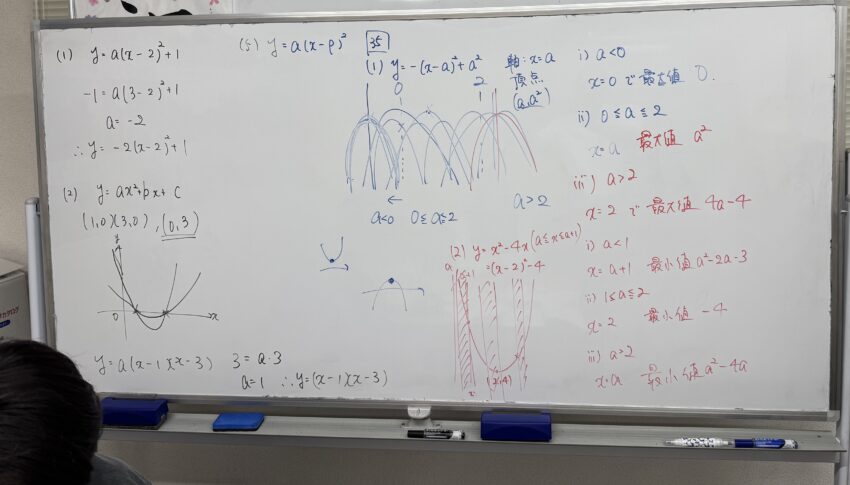 (1) y=a(x-2)²+1
-1=a(3-2)²+1
a=-2
∴y=-2(x-2)²+1
(2) y=ax²+bx+c
(1,0)(3,0),(0,3)
y
0
x
y=a(x-1)(x-3)
3=a·3
a=1 ∴y=(x-1)(x-3)
(5) y=a(x-p)²
35
(1) y=-(x-a)²+a²
軸:x=a
頂点
(a,a²)
0
2
1
←
a<0 0≦a≦2
a>2
(2) y=x²-4x(a≦x≦a+1)
=(x-2)²-4
i) a<0
x=0で最大値 0.
ii) 0≦a≦2
x=a 最大値 a²
iii) a>2
x=2で最大値 4a-4
i) a<1
x=a+1 最小値 a²-2a-3
ii) 1≦a≦2
x=2 最小値 -4
iii) a>2
x=a 最小値 a²-4a